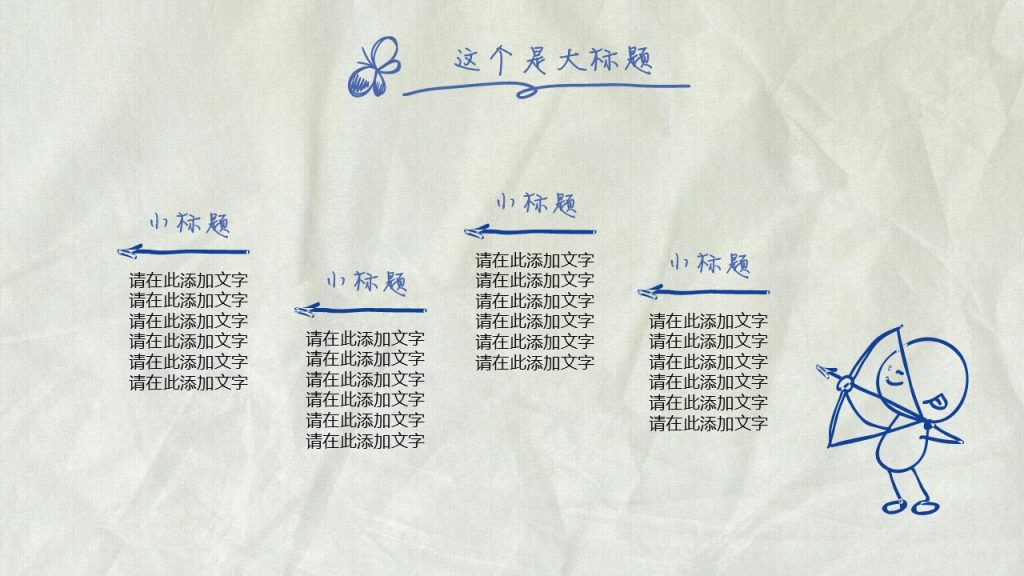 这个是大标题
小标题
请在此添加文字
请在此添加文字
请在此添加文字
请在此添加文字
请在此添加文字
请在此添加文字
小标题
请在此添加文字
请在此添加文字
请在此添加文字
请在此添加文字
请在此添加文字
请在此添加文字
小标题
请在此添加文字
请在此添加文字
请在此添加文字
请在此添加文字
请在此添加文字
请在此添加文字
小标题
请在此添加文字
请在此添加文字
请在此添加文字
请在此添加文字
请在此添加文字
请在此添加文字